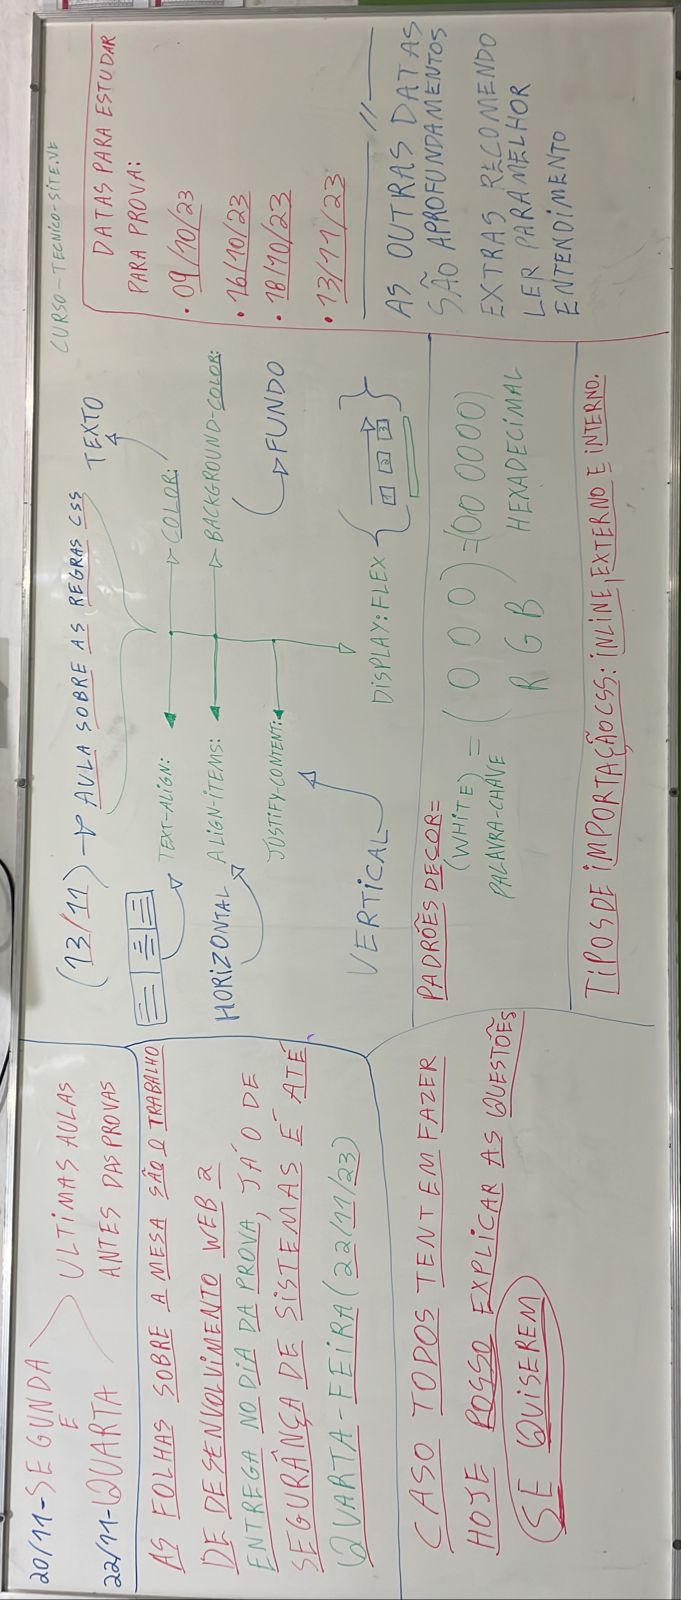 20/11-SEGUNDA
E
22/11-QUARTA
ULTIMAS AULAS
ANTES DAS PROVAS
AS FOLHAS SOBRE A MESA SÃO O TRABALHO
DE DESENVOLVIMENTO WEB 2
ENTREGA NO DIA DA PROVA, JÁ O DE
SEGURÂNÇA DE SISTEMAS É ATÉ
QUARTA-FEIRA (22/11/23)
CASO TODOS TENTEM FAZER
HOJE POSSO EXPLICAR AS QUESTOÊS
SE QUISEREM
(13/11) → AULA SOBRE AS REGRAS CSS
TEXTO
TEXT-ALIGN:
COLOR:
HORIZONTAL
ALIGN-ITEMS:
BACKGROUND-COLOR:
JUSTIFY-CONTENT:
FUNDO
VERTICAL
DISPLAY: FLEX
1 2 3
PADRÕÊS DE COR=
(WHITE) = (0 0 0) = (00 0000)
PALAVRA-CHAVE
R G B
HEXADECIMAL
TIPOS DE IMPORTAÇÃO CSS: INLINE, EXTERNO E INTERNO.
CURSO-TECNICO-SITE.VE
DATAS PARA ESTUDAR
PARA PROVA:
• 09/10/23
• 16/10/23
• 18/10/23
• 13/11/23
AS OUTRAS DATAS
SÃO APROFUNDAMENTOS
EXTRAS RECOMENDO
LER PARA MELHOR
ENTENDIMENTO